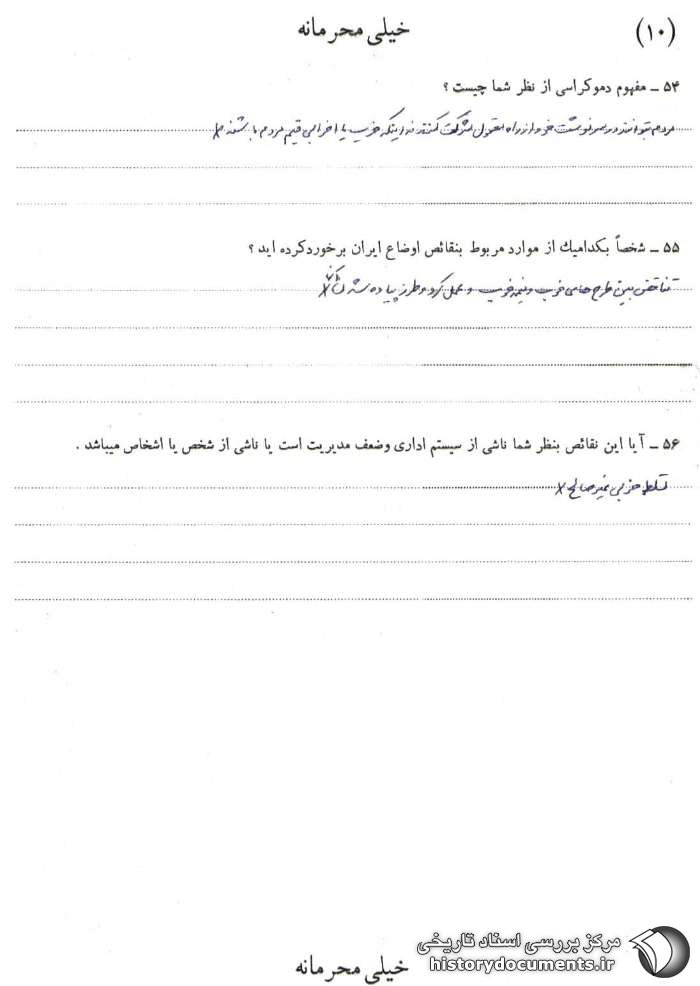 (۱۰)
خیلی محرمانه
۵۴ ــ مفهوم دموکراسی از نظر شما چیست ؟
مردم بتوانند در سرنوشت خود از راه معقول شرکت کنند نه اینکه حزب یا احزابی قیم مردم باشند
۵۵ ــ شخصاً بکدامیك از موارد مربوط بنقائص اوضاع ایران برخوردکرده اید ؟
تناقض بین طرح های خوب و نیمه خوب و عمل کرد و طرز پیاده شدن
۵۶ ــ آیا این نقائص بنظر شما ناشی از سیستم اداری وضعف مدیریت است یا ناشی از شخص یا اشخاص میباشد .
تسلط حزبی غیر صالح
مرکز بررسی اسناد تاریخی
historydocuments.ir
خیلی محرمانه